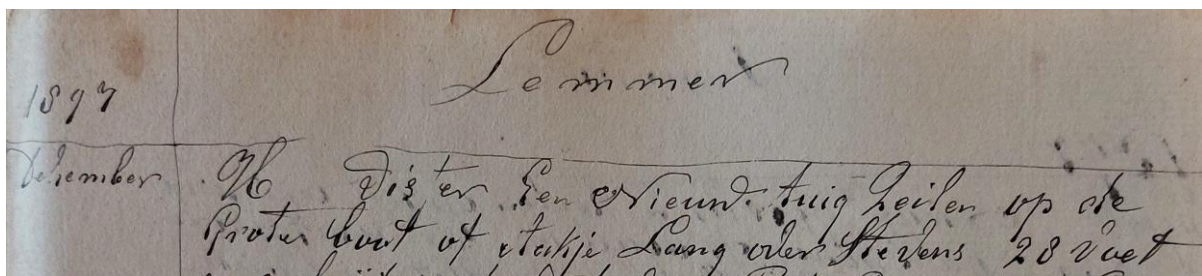 Lemmer
1897
Dehember H Dister Een Nieuw tuig Zeilen op de
Groten boot of Aakje Lang over Stevens 28 voet